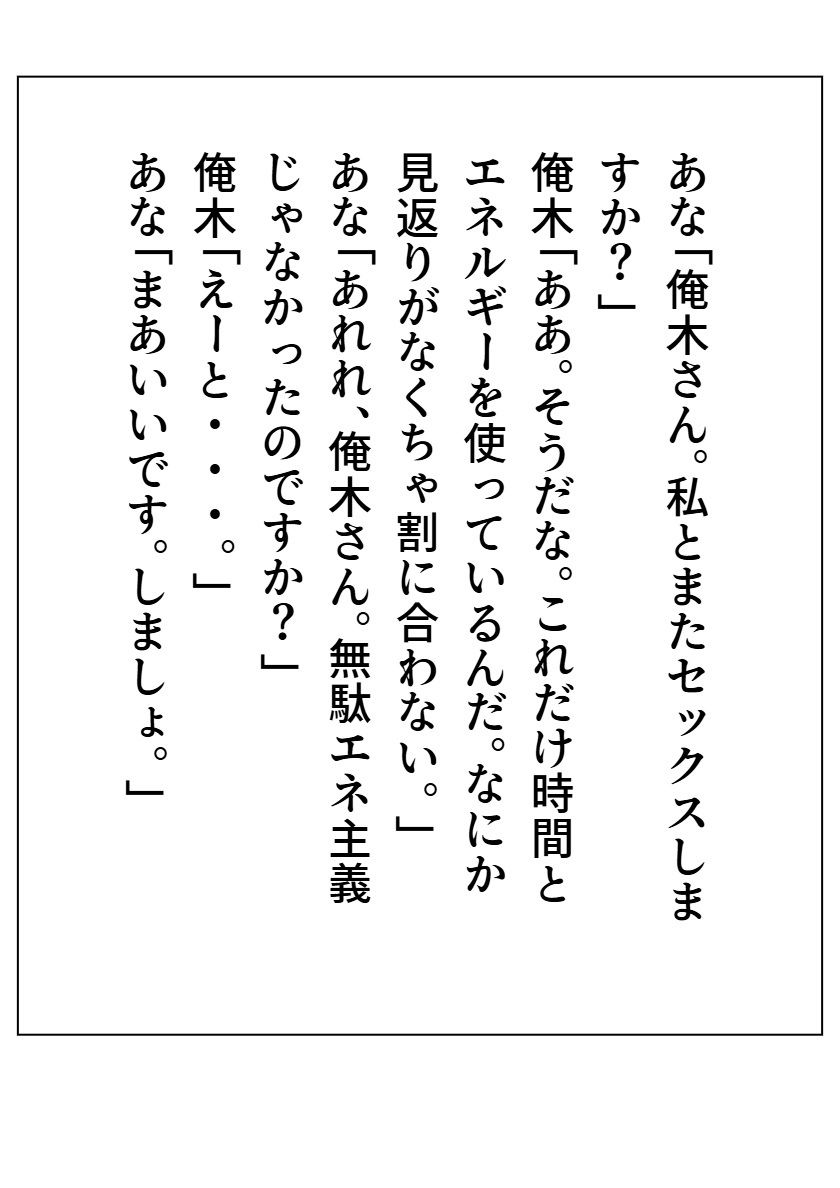 あな「俺木さん。私とまたセックスしま
すか？」
俺木「ああ。そうだな。これだけ時間と
エネルギーを使っているんだ。なにか
見返りがなくちゃ割に合わない。」
あな「あれれ、俺木さん。無駄エネ主義
じゃなかったのですか？」
俺木「えーと・・・。」
あな「まあいいです。しましょ。」